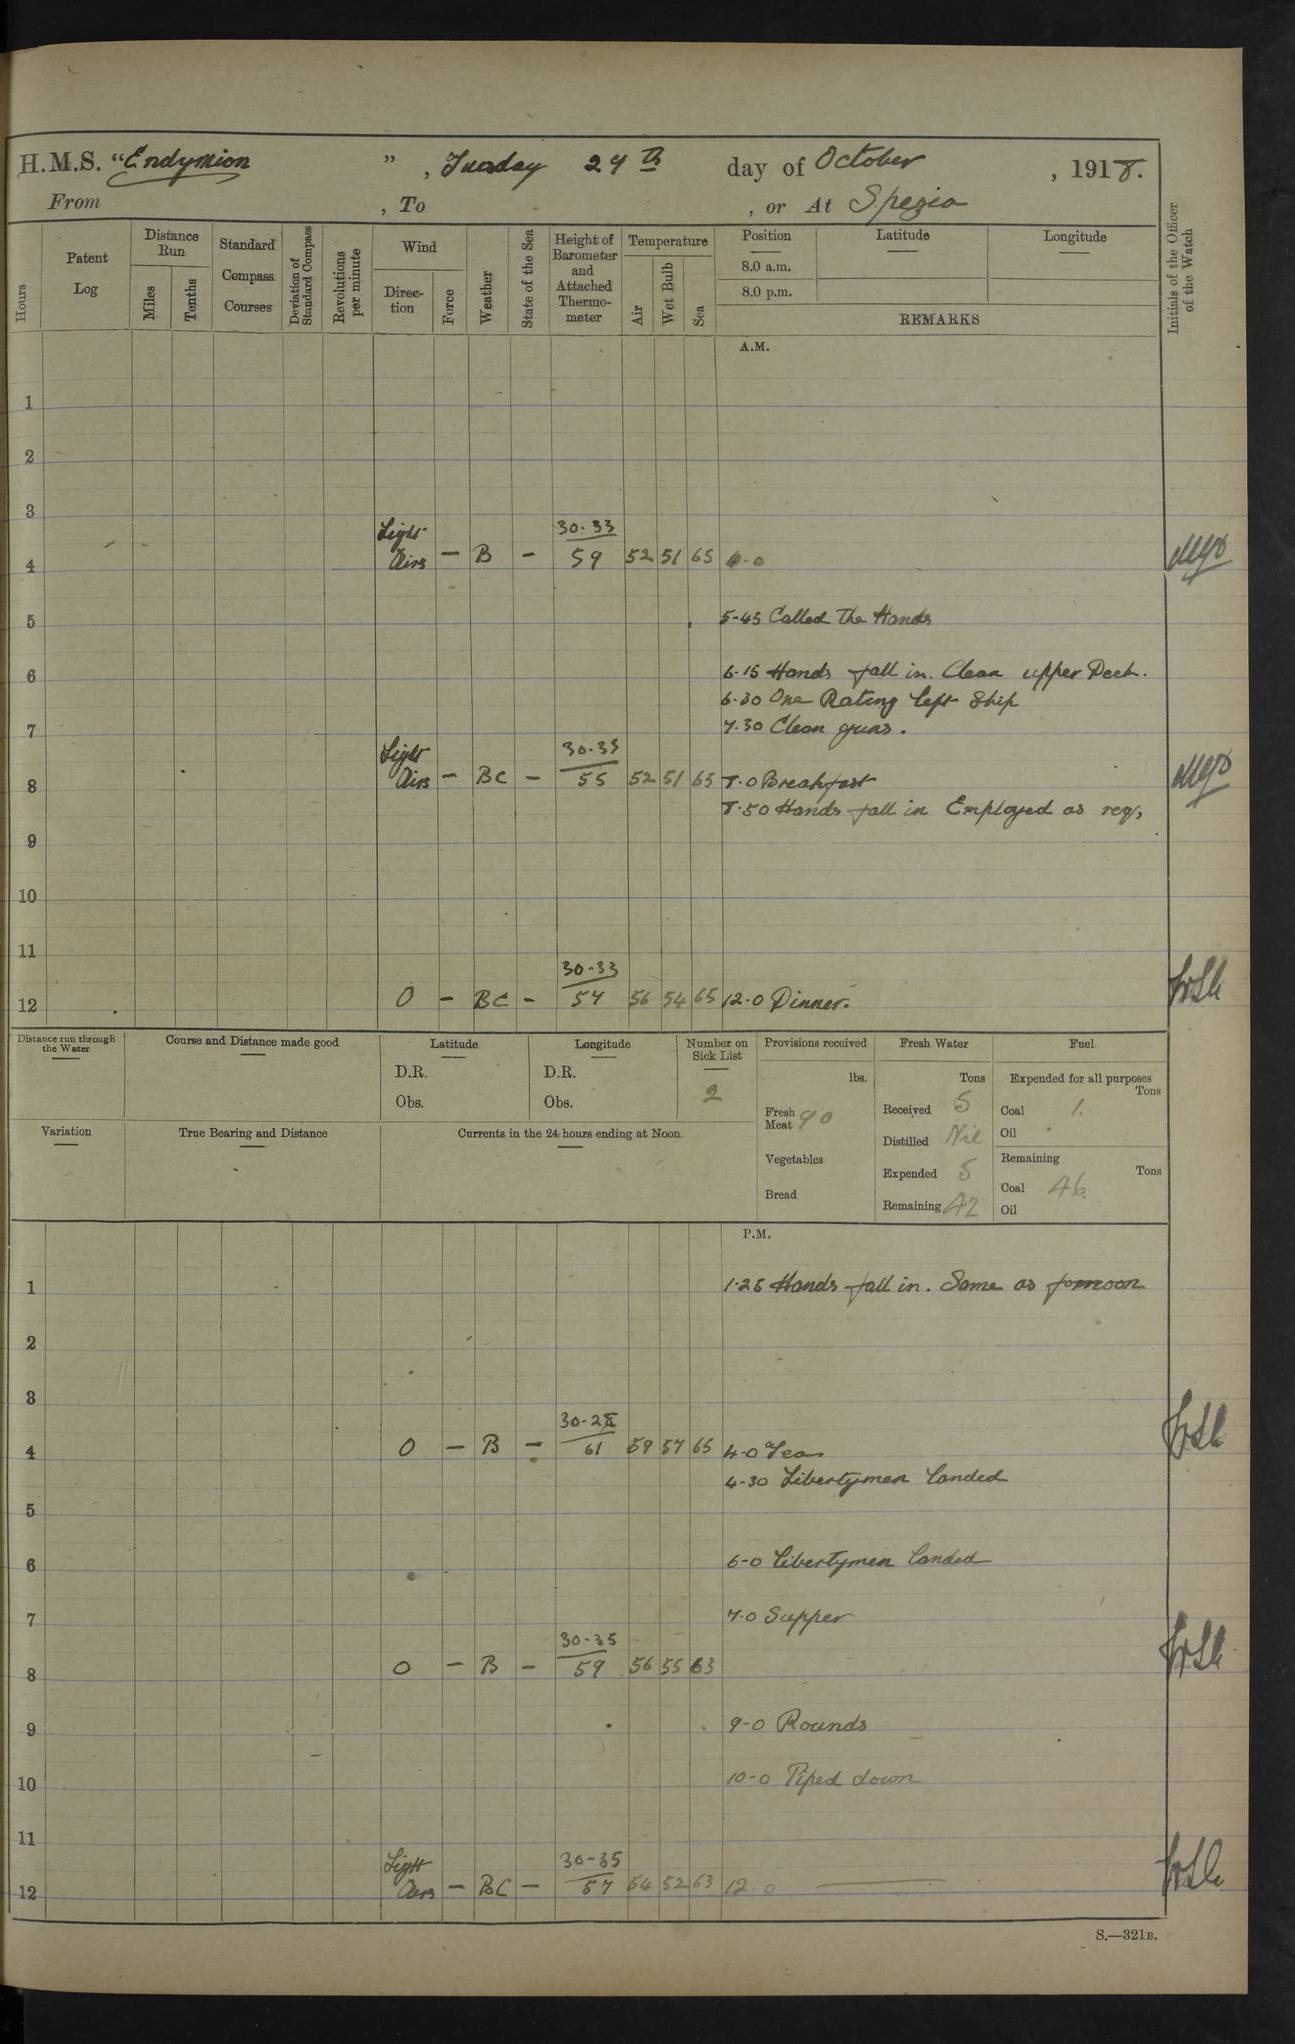 H.M.S. "Endymion", Tuesday 29th day of October, 1918.
From , To , or At Spezia
Hours
Patent Log
Distance Run
Miles
Tenths
Standard Compass Courses
Deviation of Standard Compass
Revolutions per minute
Wind
Direction
Force
Weather
State of the Sea
Height of Barometer and Attached Thermometer
Temperature
Air
Wet Bulb
Sea
Position
8.0 a.m.
8.0 p.m.
Latitude
Longitude
REMARKS
Initials of the Officer of the Watch
A.M.
1
2
3
Light 30-33
4 Airs — B — 59 52 51 65 4-0
5 5-45 Called The Hands
6 6.15 Hands fall in. Clean upper Deck.
6.30 One Rating left Ship
7 7.30 Clean guns.
Light 30-33
8 Airs — BC — 55 52 51 65 8.0 Breakfast
8.50 Hands fall in Employed as req.
9
10
11
30-33
12 O — BC — 57 56 54 65 12.0 Dinner.
Distance run through the Water
Course and Distance made good
Latitude
D.R.
Obs.
Longitude
D.R.
Obs.
Number on Sick List
2
Provisions received
lbs.
Fresh Meat 90
Vegetables
Bread
Fresh Water
Tons
Received 5
Distilled Nil
Expended 5
Remaining 42
Fuel
Expended for all purposes
Tons
Coal 1.
Oil
Remaining
Tons
Coal 46.
Oil
Variation
True Bearing and Distance
Currents in the 24 hours ending at Noon
P.M.
1 1.25 Hands fall in. Same as forenoon
2
3
4 O — B — 61 59 57 65 4-0 Tea
4-30 Libertymen landed
5
6 6-0 Libertymen landed
7 7.0 Supper
30-35
8 O — B — 59 56 55 63
9 9-0 Rounds
10 10-0 Piped down
11
Light 30-35
12 Airs — BC — 57 54 52 63 12.0
S.—321B.